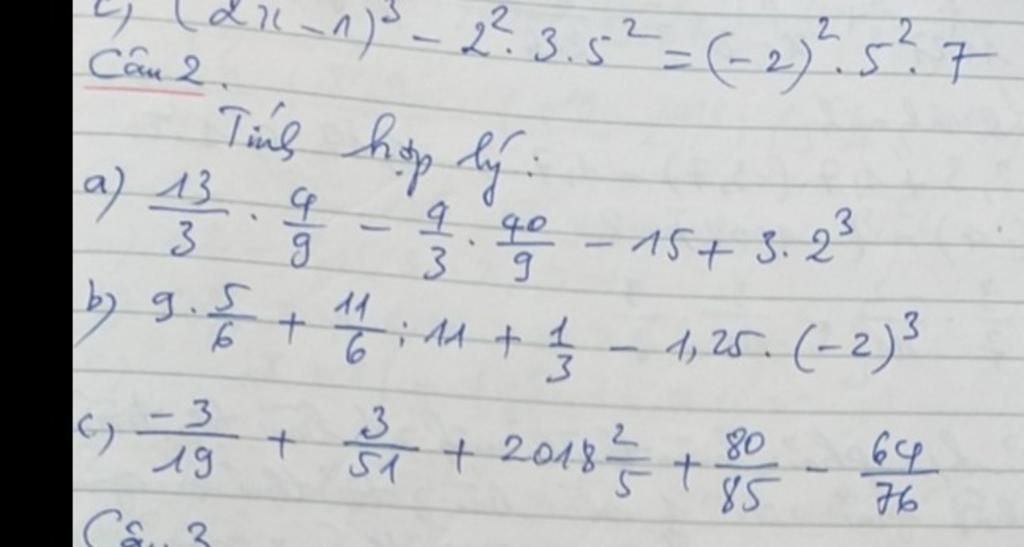 c) (2x - 1)³ - 2² . 3 . 5² = (-2)² . 5² . 7
Câu 2.
Tính hợp lý :
a) 13/3 . 4/9 - 4/3 . 40/9 - 15 + 3 . 2³
b) 9 . 5/6 + 11/6 : 11 + 1/3 - 1,25 . (-2)³
c) -3/19 + 3/51 + 2018 2/5 + 80/85 - 64/76
Câu 3